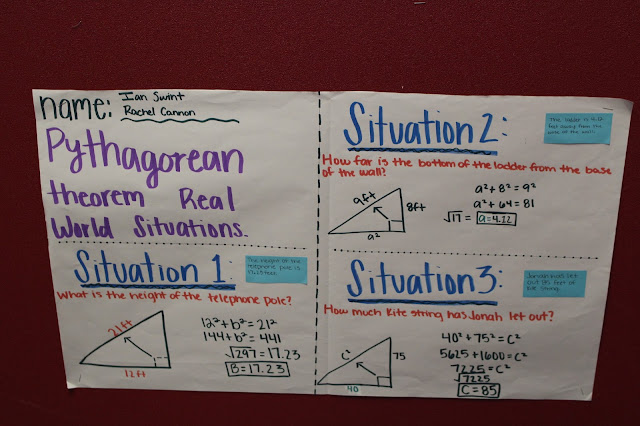 name: Ian Swint
Rachel Cannon
Pythagorean
theorem Real
World Situations.
Situation 1:
The height of the
telephone pole is
17.23 feet.
What is the height of the telephone pole?
21ft
12ft
12² + b² = 21²
144 + b² = 441
√297 = 17.23
B = 17.23
Situation 2:
The ladder is 4.12
feet away from the
base of the wall.
How far is the bottom of the ladder from the base
of the wall?
9ft
8ft
a²
a² + 8² = 9²
a² + 64 = 81
√17 = a = 4.12
Situation 3:
Jonah has let
out 85 feet of
kite string.
How much kite string has Jonah let out?
c²
75
40
40² + 75² = C²
5625 + 1600 = C²
7225 = C²
√7225
C = 85